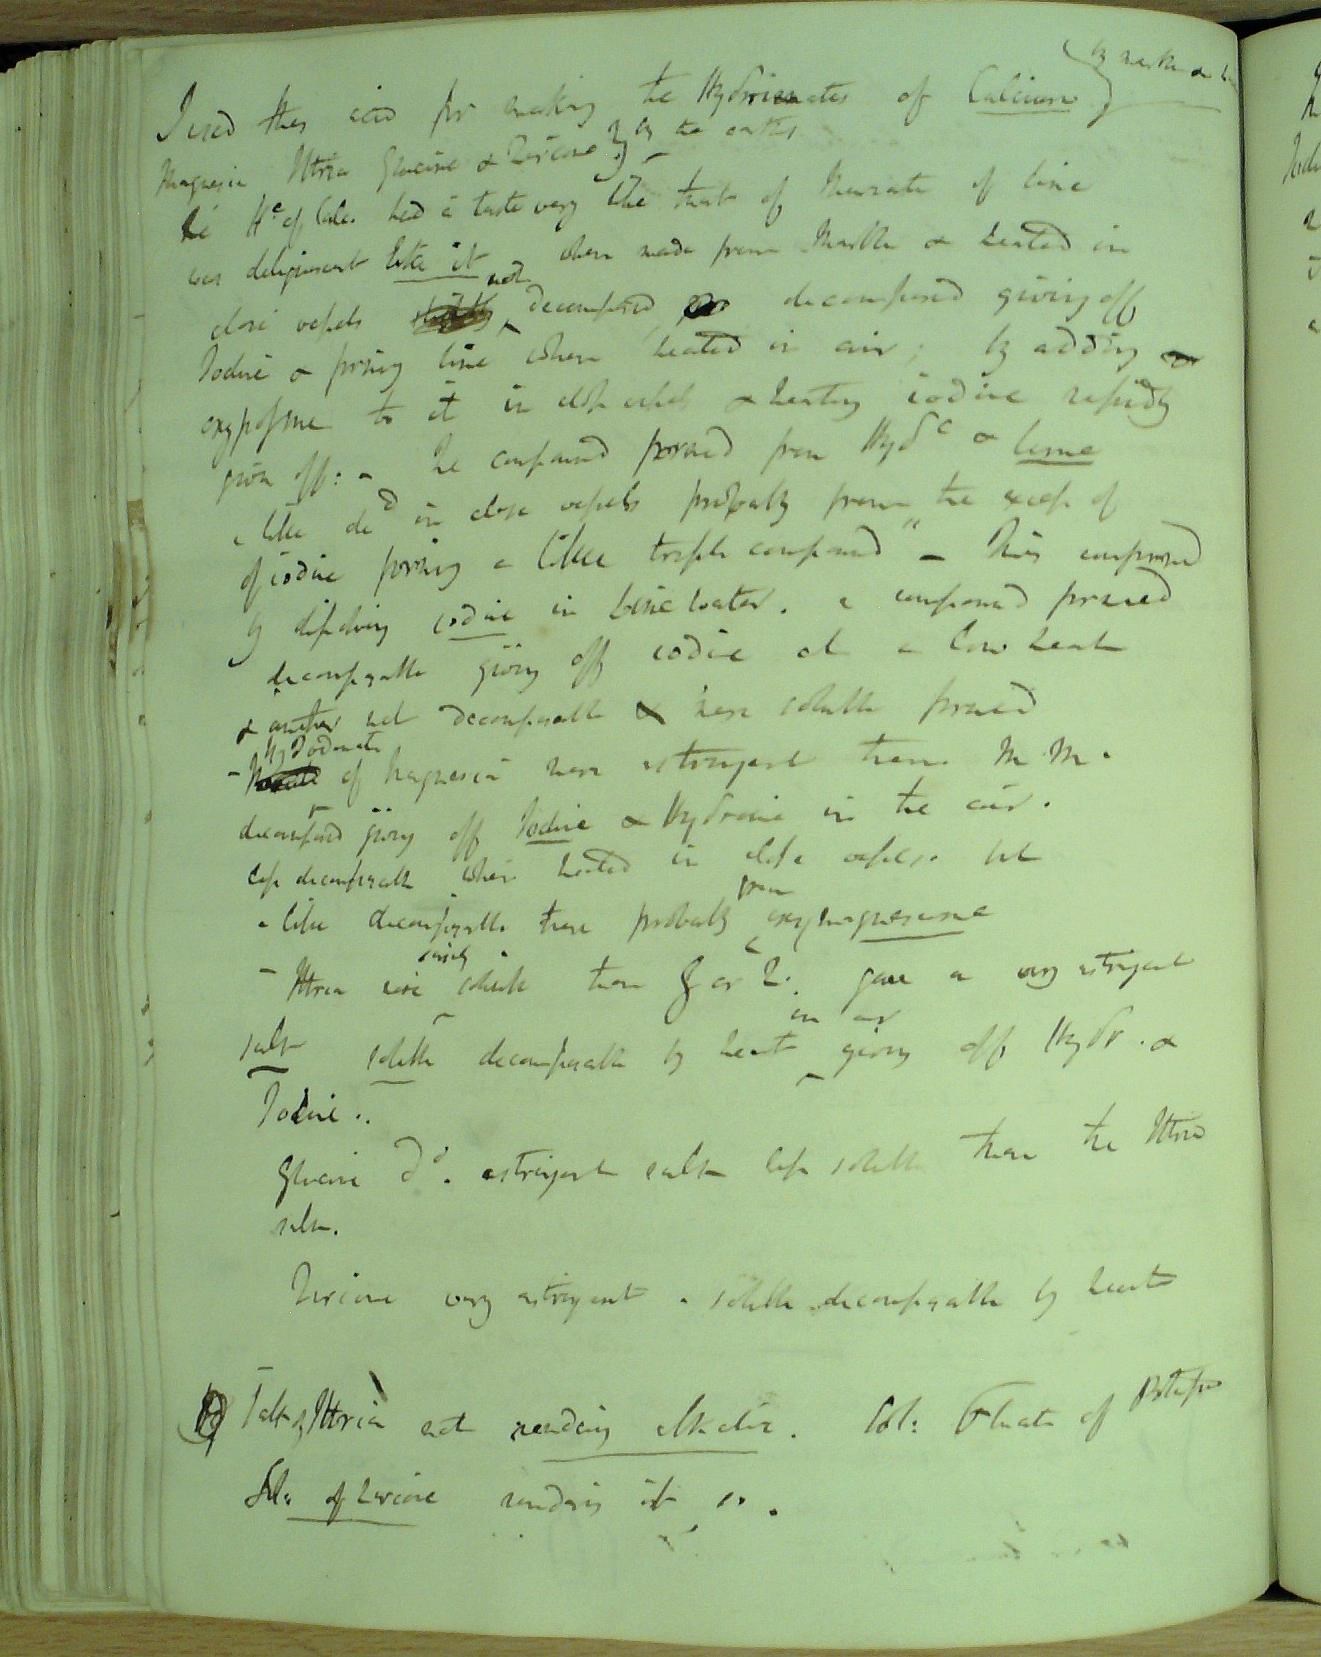 by marble &
I used this acid for making the Hydroionates of Calcium
Magnesia Ittria Glucine & Zircone } by the earths
The He of Calc. had a taste very like that of Muriate of lime
was deliquescent like it when made from Marble & heated in
close vessels slightly not decomposed decomposed giving off
Iodine & forming lime when heated in air; by adding
to it in close vessels & heating iodine rapidly
given off: - The compound formed from Hydc & lime
a little ded in close vessels probably from the excess of
of iodine forming a little triple compound" - This compound
by dissolving iodine in Lime water. a compound formed
decomposable giving off iodine at a low heat
& another not decomposable & more soluble formed
- Hydrionate of Magnesia more astringent than M. M.
decomposed giving off Iodine & Hydroionic in the air.
less decomposable when heated in close vessels. but
a little decomposable there probably from oxymagnesiane
- Ittria more easily soluble than G or Z. gave a very astringent
salt soluble decomposable by heat in air giving off Hydr. &
Iodine..
Glucine do. astringent salt less soluble than the Ittria
salt.
Zircone very astringent. soluble decomposable by heat
Salt of Ittria not rendering alkaline. Sol: Fluate of Potassa
Sol: of Zircone rendering it so.